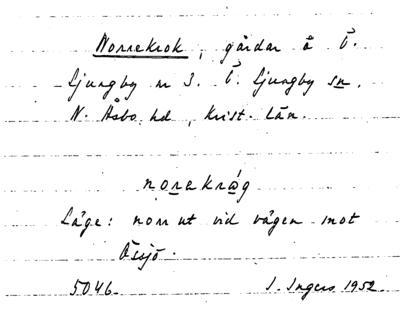 Norrekrok, gårdar å Ö.
Ljungby nr 3. Ö. Ljungby sn.
N. Åsbo hd, Krist. län.
norekråg
Läge: norr ut vid vägen mot
Össjö.
5046. I. Ingers 1952.